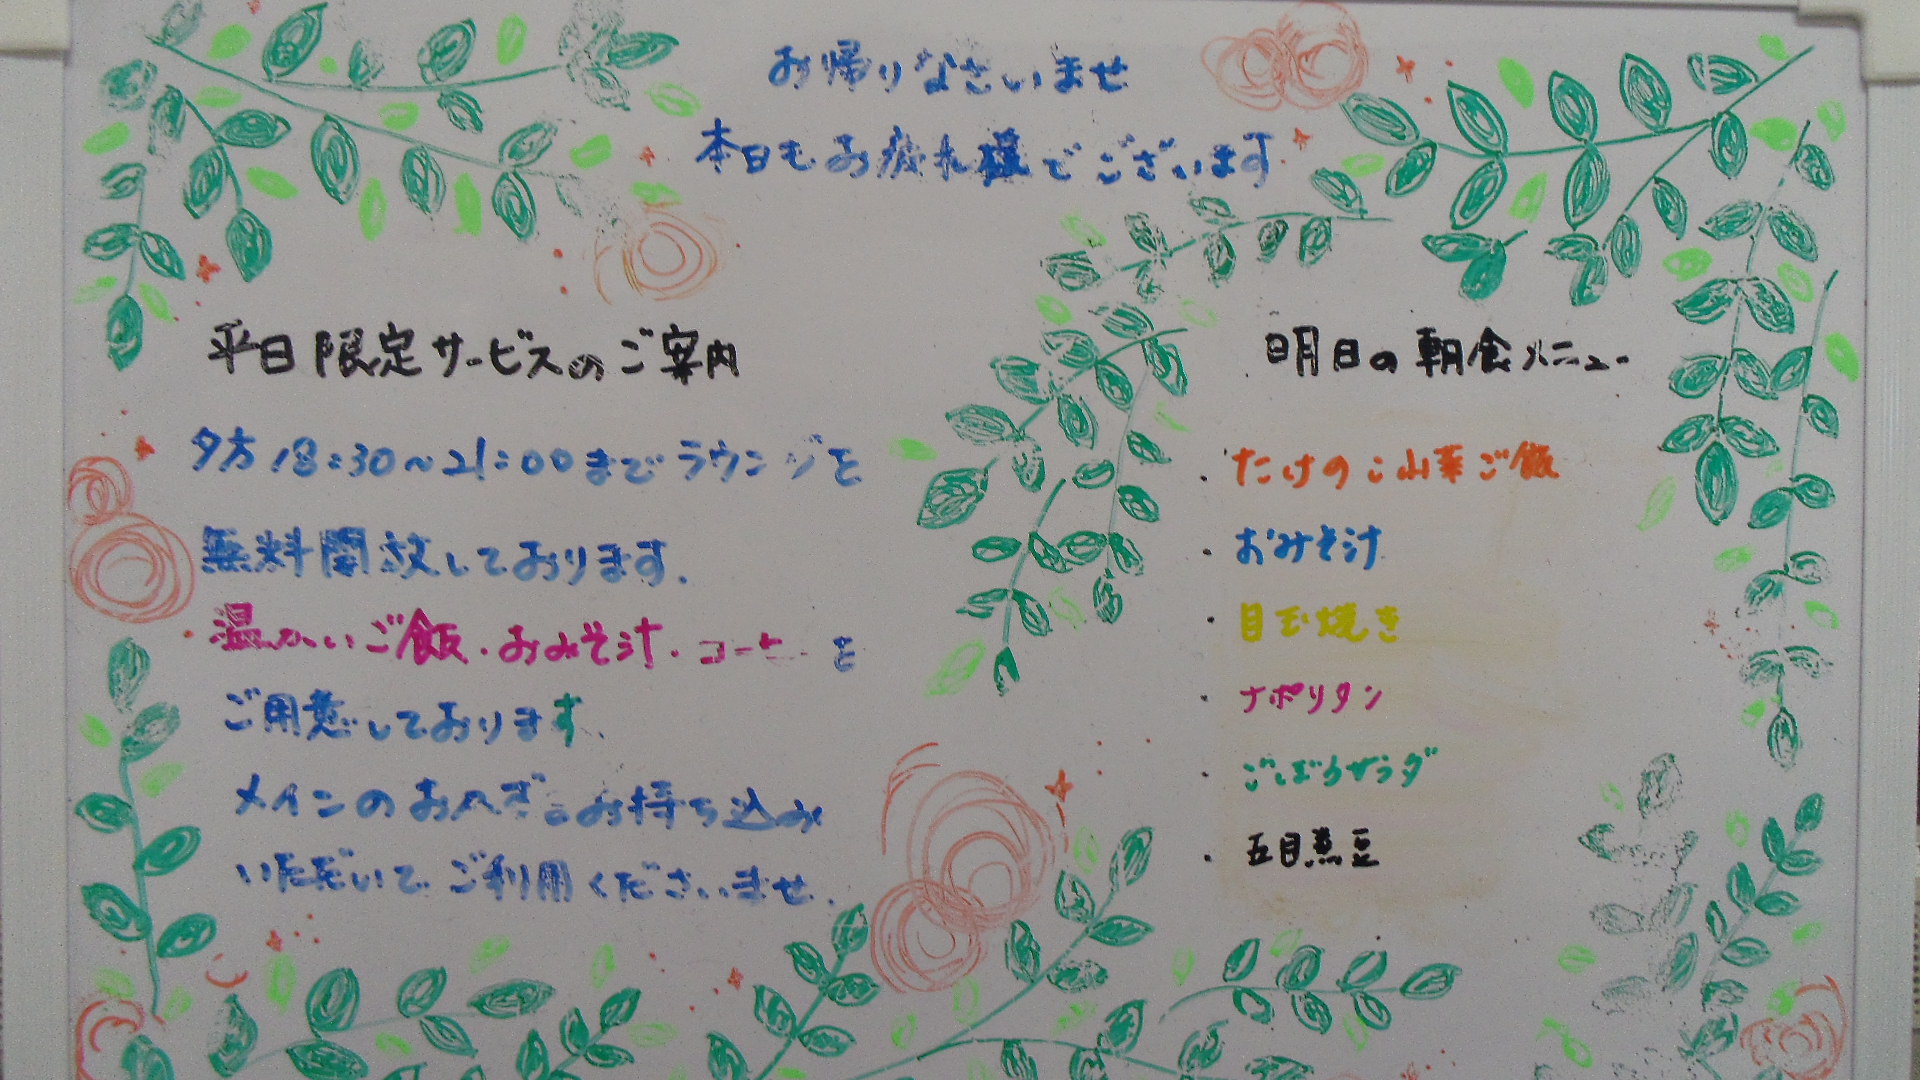 お帰りなさいませ
本日もお疲れ様でございます
平日限定サービスのご案内
夕方18:30~21:00までラウンジを
無料開放しております.
温かいご飯.おみそ汁.コーヒーを
ご用意しております.
メインのおかずをお持ち込み
いただいて ご利用くださいませ.
明日の朝食メニュー
・たけのこ山菜ご飯
・おみそ汁
・目玉焼き
・ナポリタン
・ごぼうサラダ
・五目煮豆